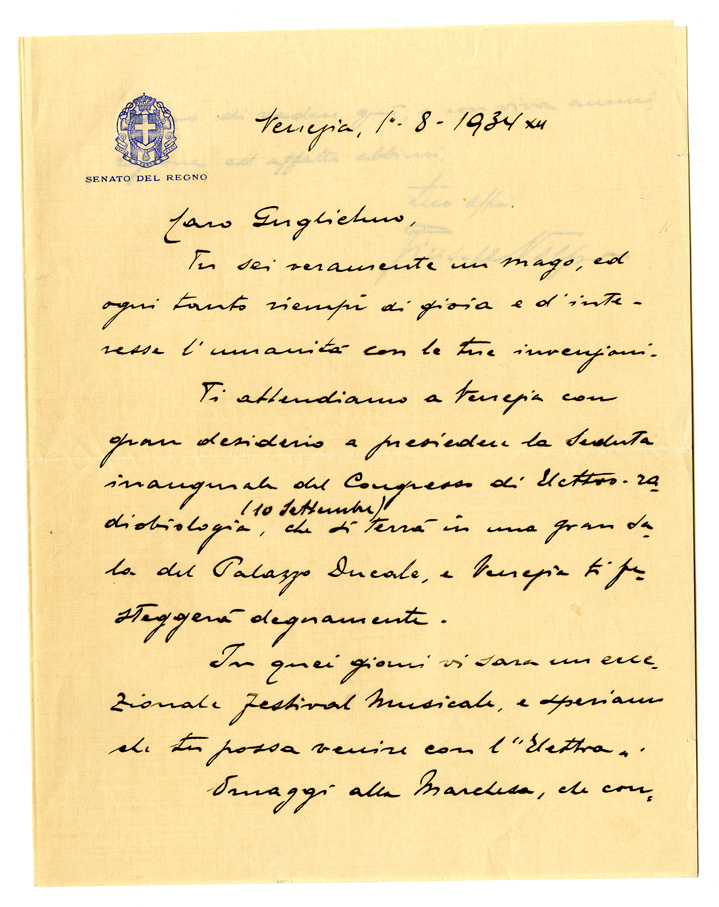 SENATO DEL REGNO
Venezia, 1°- 8 - 1934 XII
Caro Guglielmo,
Tu sei veramente un mago, ed
ogni tanto riempi di gioia e d'inte-
resse l'umanità con le tue invenzioni.
Ti attendiamo a Venezia con
gran desiderio a presiedere la Seduta
inaugurale del Congresso di Elettro-ra-
(10 Settembre)
diobiologia, che si terrà in una gran sa-
la del Palazzo Ducale, e Venezia ti fe-
steggerà degnamente.
In quei giorni vi sarà un ecce-
zionale Festival Musicale, e speriamo
che tu possa venire con l'"Elettra".
Omaggi alla Marchesa, che con-